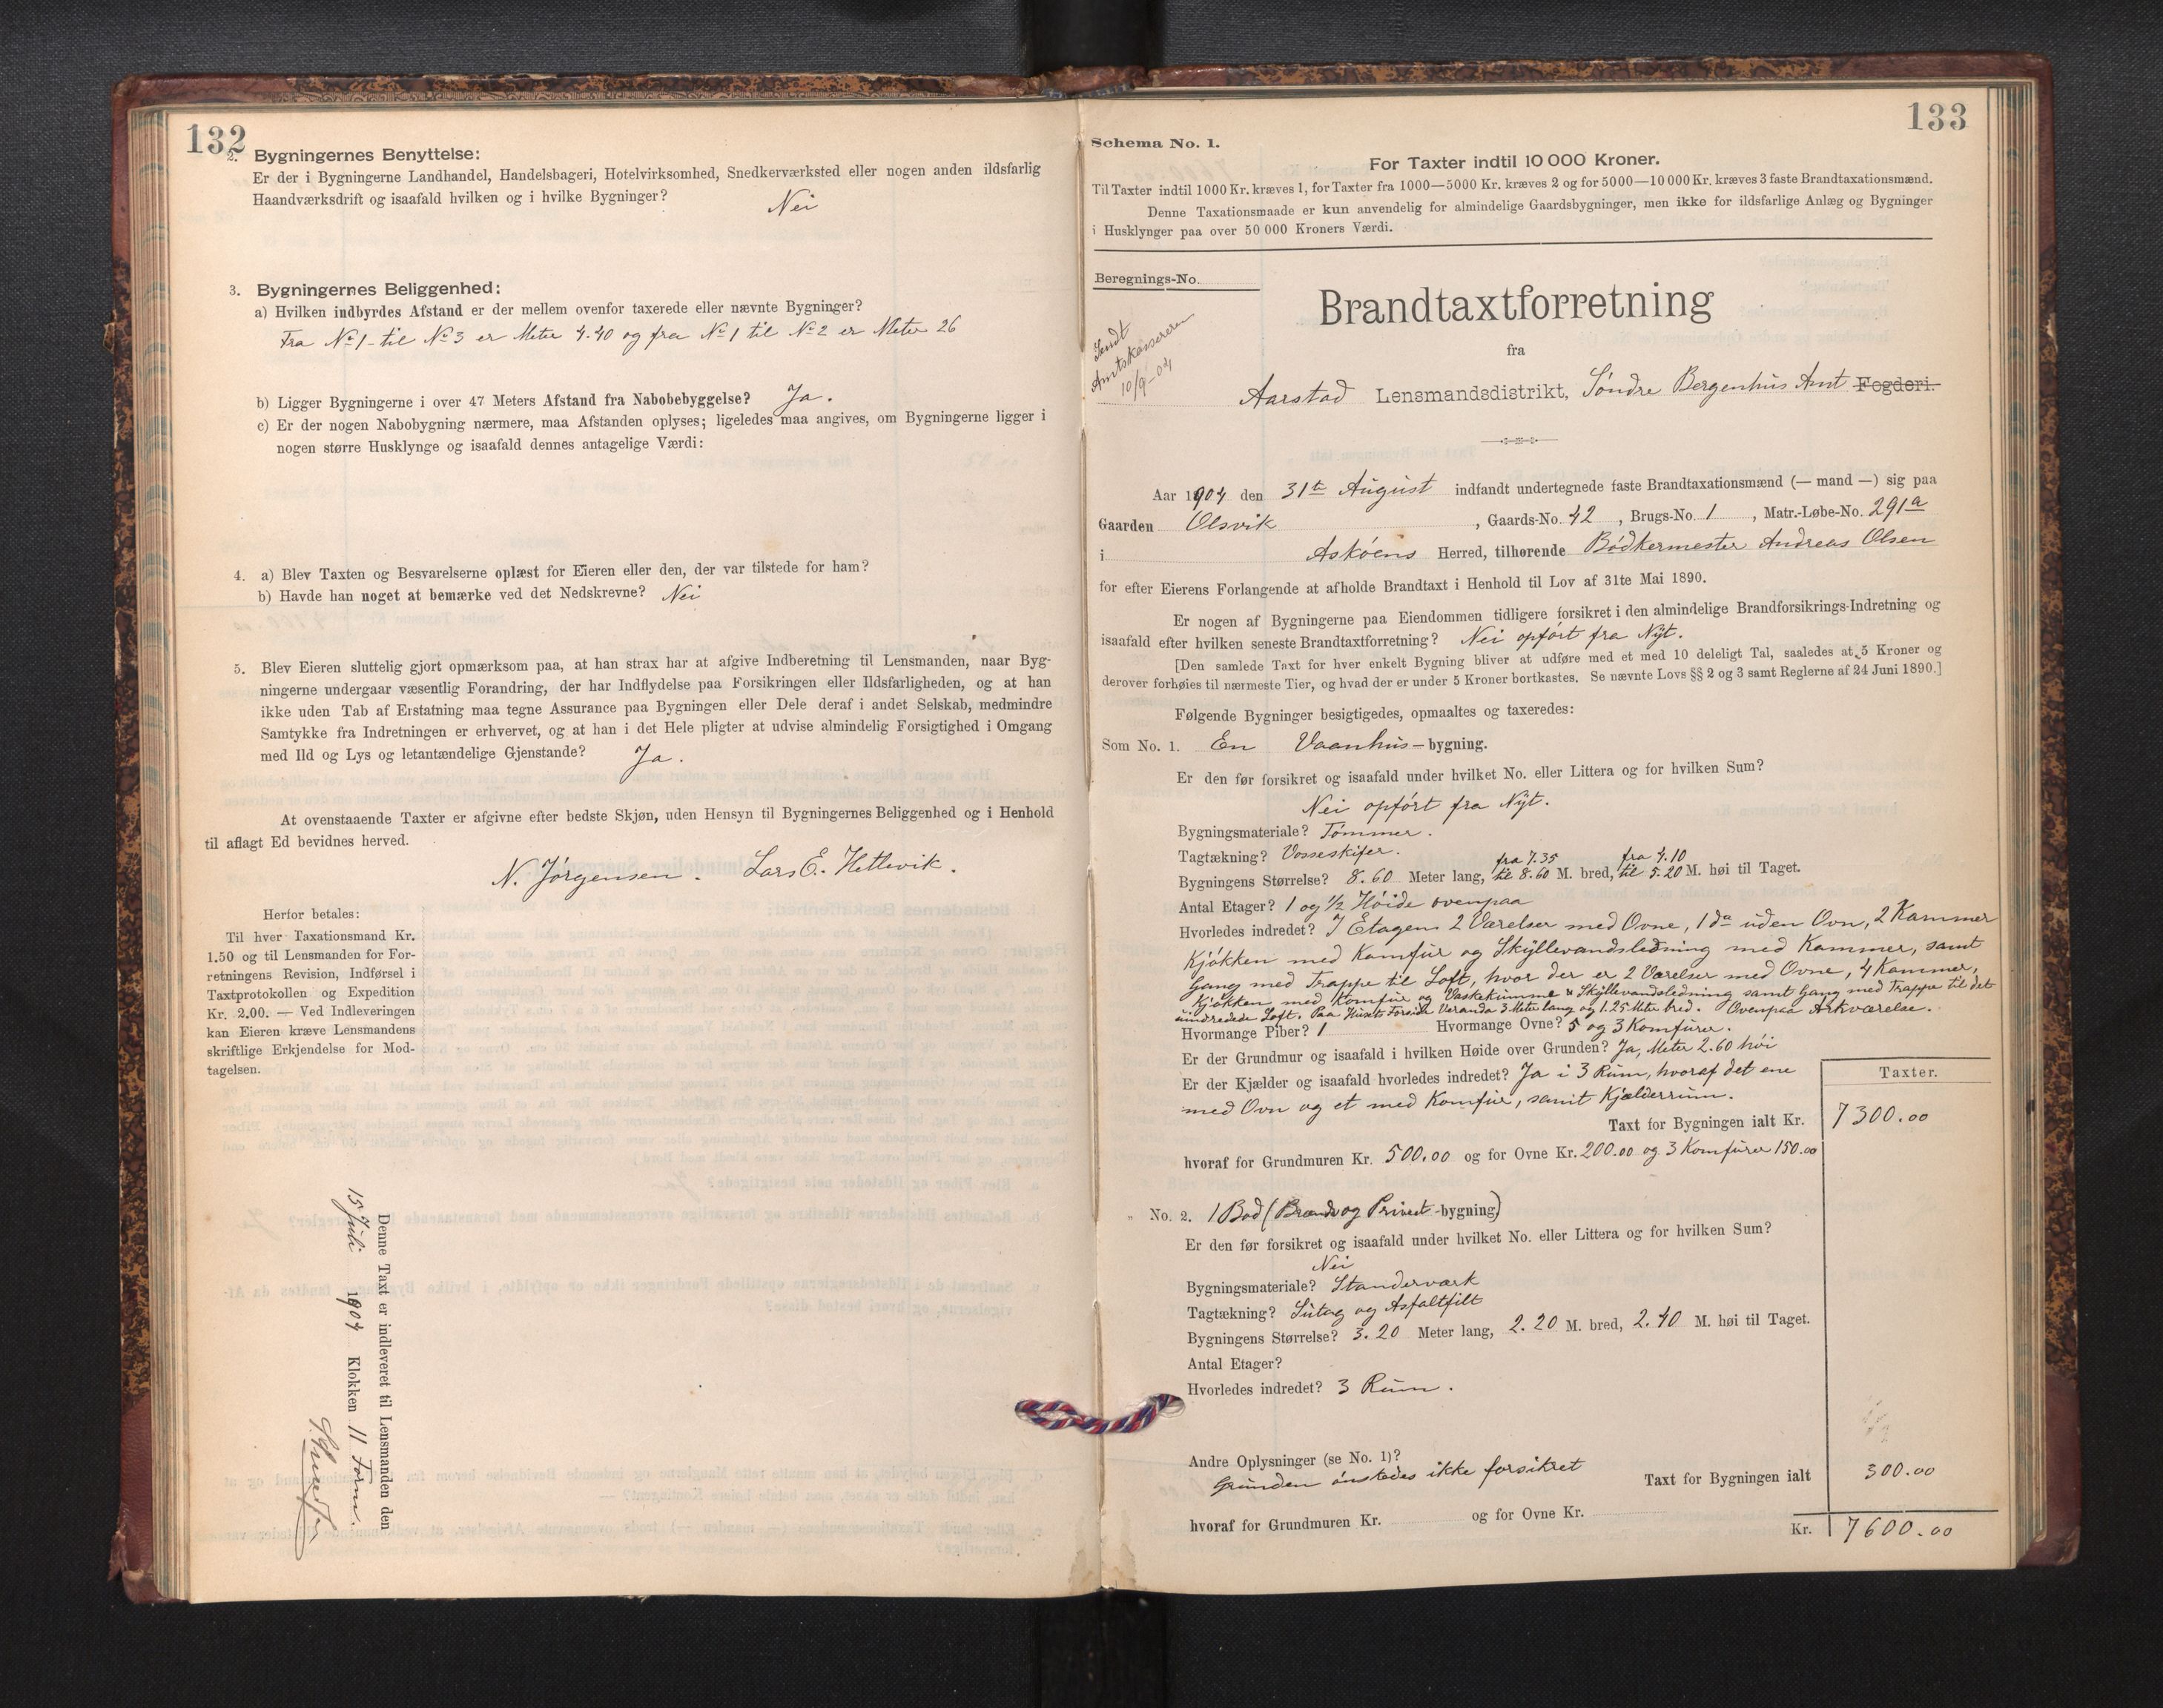 132
2. Bygningernes Benyttelse:
Er der i Bygningerne Landhandel, Handelsbageri, Hotelvirksomhed, Snedkerværksted eller nogen anden ildsfarlig
Haandværksdrift og isaafald hvilken og i hvilke Bygninger? Nei
3. Bygningernes Beliggenhed:
a) Hvilken indbyrdes Afstand er der mellem ovenfor taxerede eller nævnte Bygninger?
Fra No 1 til No 3 er Meter 4.40 og fra No 1 til No 2 er Meter 26
b) Ligger Bygningerne i over 47 Meters Afstand fra Nabobebyggelse? Ja.
c) Er der nogen Nabobygning nærmere, maa Afstanden oplyses; ligeledes maa angives, om Bygningerne ligger i
nogen større Husklynge og isaafald dennes antagelige Værdi:
4. a) Blev Taxten og Besvarelserne oplæst for Eieren eller den, der var tilstede for ham?
b) Havde han noget at bemærke ved det Nedskrevne? Nei
5. Blev Eieren sluttelig gjort opmærksom paa, at han strax har at afgive Indberetning til Lensmanden, naar Byg-
ningerne undergaar væsentlig Forandring, der har Indflydelse paa Forsikringen eller Ildsfarligheden, og at han
ikke uden Tab af Erstatning maa tegne Assurance paa Bygningen eller Dele deraf i andet Selskab, medmindre
Samtykke fra Indretningen er erhvervet, og at han i det Hele pligter at udvise almindelig Forsigtighed i Omgang
med Ild og Lys og letantændelige Gjenstande? Ja.
At ovenstaaende Taxter er afgivne efter bedste Skjøn, uden Hensyn til Bygningernes Beliggenhed og i Henhold
til aflagt Ed bevidnes herved.
N. Jørgensen. Lars E. Hetlevik.
Herfor betales:
Til hver Taxationsmand Kr.
1.50 og til Lensmanden for For-
retningens Revision, Indførsel i
Taxtprotokollen og Expedition
Kr. 2.00. — Ved Indleveringen
kan Eieren kræve Lensmandens
skriftlige Erkjendelse for Mod-
tagelsen.
Denne Taxt er indleveret til Lensmanden den
15 Juli 1904 Klokken 11 Form.
133
Schema No. 1.
For Taxter indtil 10 000 Kroner.
Til Taxter indtil 1000 Kr. kræves 1, for Taxter fra 1000—5000 Kr. kræves 2 og for 5000—10 000 Kr. kræves 3 faste Brandtaxationsmænd.
Denne Taxationsmaade er kun anvendelig for almindelige Gaardsbygninger, men ikke for ildsfarlige Anlæg og Bygninger
i Husklynger paa over 50 000 Kroners Værdi.
Beregnings-No.
Sendt
Amtskassereren
10/9-04
Brandtaxtforretning
fra
Aarstad Lensmandsdistrikt, Søndre Bergenhus Amt Fogderi.
Aar 1904 den 31te August indfandt undertegnede faste Brandtaxationsmænd (— mand —) sig paa
Gaarden Olsvik, Gaards-No. 42, Brugs-No. 1, Matr.-Løbe-No. 291a
i Askøens Herred, tilhørende Bødkermester Andreas Olsen
for efter Eierens Forlangende at afholde Brandtaxt i Henhold til Lov af 31te Mai 1890.
Er nogen af Bygningerne paa Eiendommen tidligere forsikret i den almindelige Brandforsikrings-Indretning og
isaafald efter hvilken seneste Brandtaxtforretning? Nei opført fra Nyt.
[Den samlede Taxt for hver enkelt Bygning bliver at udføre med et med 10 deleligt Tal, saaledes at 5 Kroner og
derover forhøies til nærmeste Tier, og hvad der er under 5 Kroner bortkastes. Se nævnte Lovs §§ 2 og 3 samt Reglerne af 24 Juni 1890.]
Følgende Bygninger besigtigedes, opmaaltes og taxeredes:
Som No. 1. En Vaanhus-bygning.
Er den før forsikret og isaafald under hvilket No. eller Littera og for hvilken Sum?
Nei opført fra Nyt.
Bygningsmateriale? Tømmer.
Tagtækning? Vosseskifer.
Bygningens Størrelse? 8.60 Meter lang, fra 7.35 til 8.60 M. bred, fra 4.10 til 5.20 M. høi til Taget.
Antal Etager? 1 og 1/2 Høide ovenpaa
Hvorledes indredet? I Etagen 2 Værelser med Ovne, 1 do uden Ovn, 2 Kammer
Kjøkken med Komfur og Skyllevandsledning med Kammer, samt
Gang med Trappe til Loft, hvor der er 2 Værelser med Ovne, 4 Kammer,
Kjøkken med Komfur og Vaskekumme & Skyllevandsledning samt Gang med Trappe til det
uindredede Loft. Paa Husets Forside Veranda 3 Meter lang og 1.25 Meter bred. Ovenpaa Arkværelse.
Hvormange Piber? 1 Hvormange Ovne? 5 og 3 Komfurer.
Er der Grundmur og isaafald i hvilken Høide over Grunden? Ja, Meter 2.60 høi
Er der Kjælder og isaafald hvorledes indredet? Ja i 3 Rum, hvoraf det ene
med Ovn og et med Komfur, samt Kjælderrum.
Taxter.
Taxt for Bygningen ialt Kr. 7300.00
hvoraf for Grundmuren Kr. 500.00 og for Ovne Kr. 200.00 og 3 Komfurer 150.00
" No. 2. 1 Bod (Brænde og Privet-bygning)
Er den før forsikret og isaafald under hvilket No. eller Littera og for hvilken Sum?
Nei
Bygningsmateriale? Standerværk
Tagtækning? Sutag og Asfaltfilt
Bygningens Størrelse? 3.20 Meter lang, 2.20 M. bred, 2.40 M. høi til Taget.
Antal Etager?
Hvorledes indredet? 3 Rum.
Andre Oplysninger (se No. 1)?
Grunden ønskedes ikke forsikret
Taxt for Bygningen ialt 300.00
hvoraf for Grundmuren Kr. og for Ovne Kr.
Kr. 7600.00